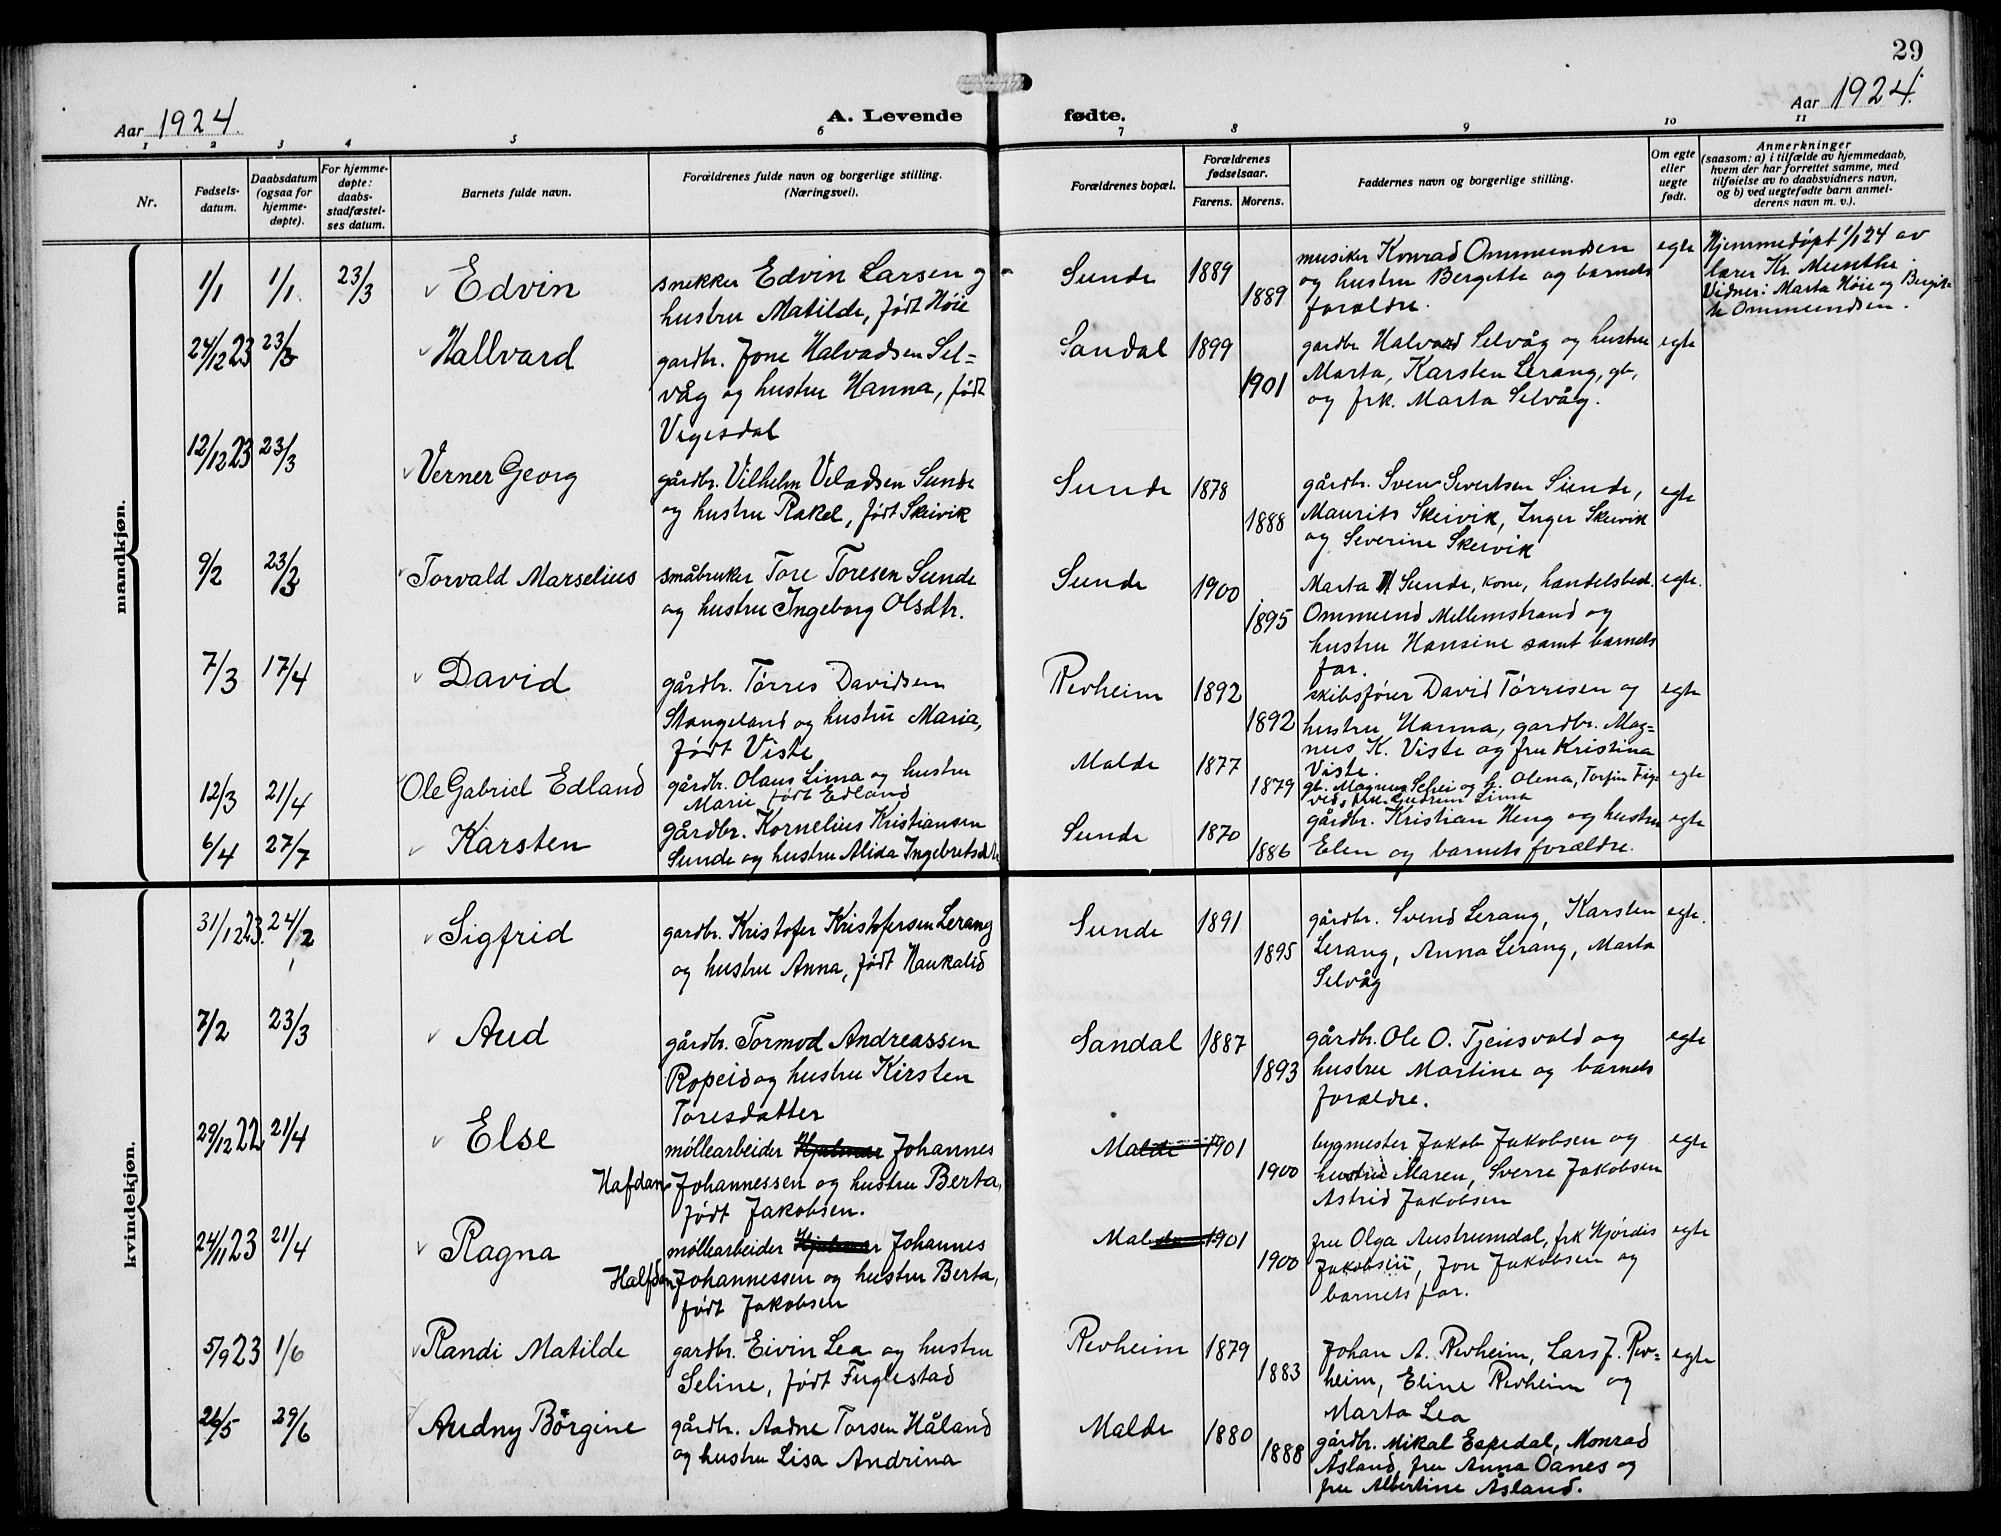 29
Aar 1924.
A. Levende
fødte.
Aar 1924.
1 2 3 4 5 6 7 8 9 10 11
Nr.
Fødsels-
datum.
Daabsdatum
(ogsaa for
hjemme-
døpte).
For hjemme-
døpte:
daabs-
stadfæstel-
ses datum.
Barnets fulde navn.
Forældrenes fulde navn og borgerlige stilling.
(Næringsvei).
Forældrenes bopæl.
Forældrenes
fødselsaar.
Farens. Morens.
Faddernes navn og borgerlige stilling.
Om egte
eller
uegte
født.
Anmerkninger
(saasom: a) i tilfælde av hjemmedaab,
hvem der har forrettet samme, med
tilføielse av to daabsvidners navn,
og b) ved uegtefødte barn anmel-
derens navn m. v.).
mandkjøn.
1/1 1/1. 23/3 Edvin
snekker Edvin Larsen og
hustru Matilde, født Høie
Sunde 1889 1889
musiker Konrad Ommundsen
og hustru Bergitte og barnets
forældre.
egte
Hjemmedøpt 1/1 24 av
lærer Kr. Munthe.
Vidner: Marta Høie og Bergit-
te Ommundsen.
24/12 23 23/3 Hallvard
gardbr. Jone Halvadsen Sel=
våg og hustru Hanna, født
Vigesdal
Sandal 1899 1901
gardbr Halvard Selvåg og hustru
Marta, Karsten Lerang, gb,
og frk. Marta Selvåg.
egte
12/12 23 23/3 Verner Georg
gårdbr. Vilhelm Veladsen Sunde
og hustru Rakel, født Skeivik
Sunde 1878 1888
gårdbr. Sven Sivertsen Sunde,
Maurits Skeivik, Inger Skeivik
og Severine Skeivik
egte
9/2 23/3 Torvald Marselius
småbruker Tore Toresen Sunde
og hustru Ingeborg Olsdtr.
Sunde 1900 1895
Marta Sunde, kone, handelsbed.
Ommund Mellemstrand og
hustru Hansine samt barnets
far.
egte.
7/3 17/4 David
gårdbr. Tørres Davidsen
Stangeland og hustru Maria,
født Viste
Revheim 1892 1892
skibsfører David Tørresen og
hustru Hanna, gardbr. Mag=
nus K. Viste og fru Kristina
Viste.
egte
12/3 21/4 Ole Gabriel Edland
gårdbr. Olaus Lima og hustru
Marie født Edland
Malde 1877 1879
gb. Magnus Schei og h. Olena, Torfin Fig-
ved, fru Gudrun Lima
egte
6/4 27/7 Karsten
gårdbr. Kornelius Kristiansen
Sunde og hustru Alida Ingebretsdtr
Sunde 1870 1886
gårdbr. Kristian Heng og hustru
Elen og barnets forældre.
egte
kvindekjøn.
31/12 23. 24/2 Sigfrid
gardbr. Kristofer Kristofersen Lerang
og hustru Anna, født Haukalid
Sunde 1891 1895
gårdbr. Svend Lerang, Karsten
Lerang, Anna Lerang, Marta
Selvåg
egte.
7/2 23/3 Aud
gårdbr. Tormod Andreassen
Ropeid og hustru Kirsten
Toresdatter
Sandal 1887 1893
gårdbr. Ole O. Tjensvold og
hustru Martine og barnets
forældre.
egte
29/12 22 21/4 Else
møllearbeider Hjalmar Johannes
Hafdan Johannessen og hustru Berta,
født Jakobsen.
Malde 1901 1900
bygmester Jakob Jakobsen og
hustru Maren, Sverre Jakobsen
Astrid Jakobsen
egte
24/11 23 21/4 Ragna
møllearbeider Hjalmar Johannes
Halfdan Johannessen og hustru Berta,
født Jakobsen
Malde 1901 1900
fru Olga Austrumdal, frk Hjørdis
Jakobsen, Jon Jakobsen og
barnets far.
egte
5/9 23 1/6 Randi Matilde
gardbr. Eivin Lea og hustru
Seline, født Fuglestad
Revheim 1879 1883
Johan A. Revheim, Lars J. Rev=
heim, Eline Revheim og
Marta Lea
egte
26/5 29/6 Audny Børgine
gårdbr. Aadne Torsen Håland
og hustru Lisa Andrina
Malde 1880 1888
gårdbr. Mikal Espedal, Monrad
Åsland, fru Anna Oanes og
fru Albertine Åsland.